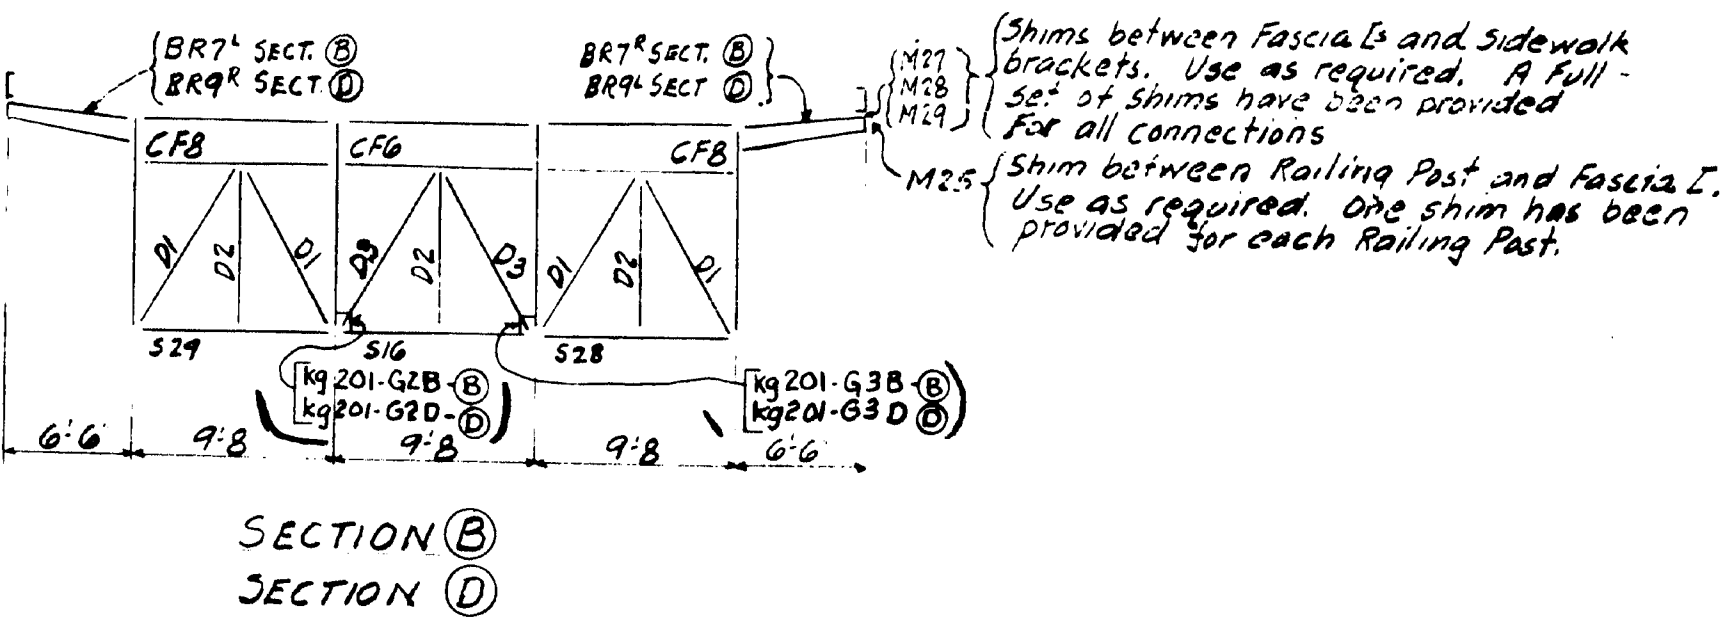 BR7ᴸ SECT. Ⓑ
BR9ᴿ SECT. Ⓓ
BR7ᴿ SECT. Ⓑ
BR9ᴸ SECT Ⓓ
M27
M28
M29
Shims between Fascia [s and sidewalk
brackets. Use as required. A Full-
set of shims have been provided
For all connections
M25
Shim between Railing Post and Fascia [.
Use as required. One shim has been
provided for each Railing Post.
CF8
CF6
CF8
D1
D2
D1
D3
D2
D3
D1
D2
D1
S29
S16
S28
kg201-G2B-Ⓑ
kg201-G2D-Ⓓ
kg201-G3B-Ⓑ
kg201-G3D Ⓓ
6'-6
9'-8
9'-8
9'-8
6'-6
SECTION Ⓑ
SECTION Ⓓ